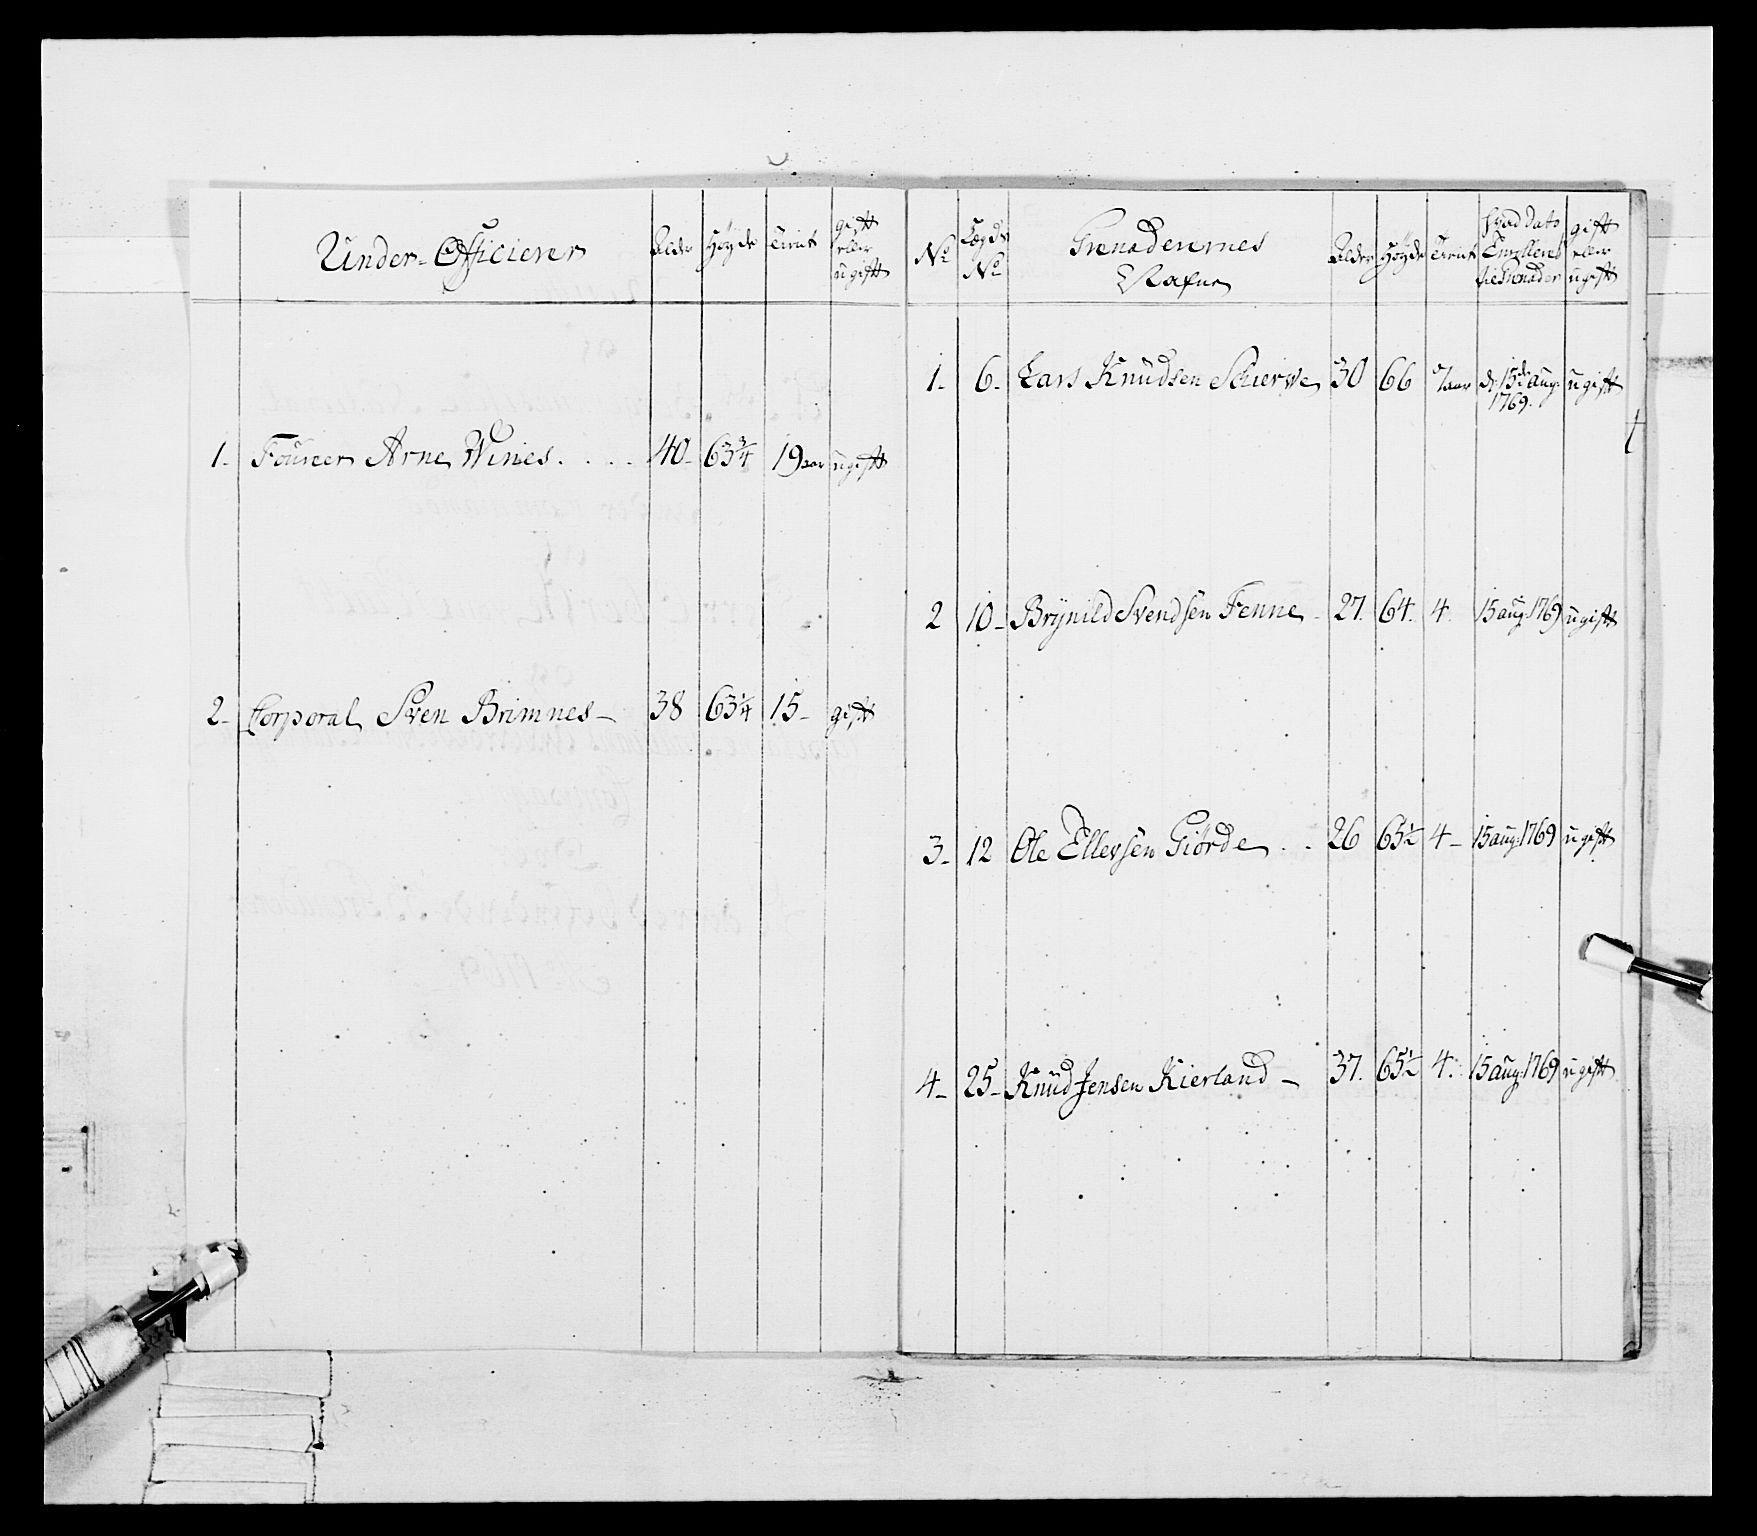 Under-Officierer Alder Høyde Tienst gift eller ugift
1- Fourier Arne Wines.... 40- 63¾ 19 aar ugift
2- Corporal Sven Brimnes- 38 63¼ 15- gift
No Lægds No Grenaderernes Nafne Alder Høyde Tienst hvad Dato Enrolleret til Grenader gift eller ugift
1- 6- Lars Knudsen Schierve 30 66 aar d: 15de aug: 1769. ugift
2 10- Brynild Svendsen Fenne- 27. 64. 4. 15 aug: 1769 ugift
3- 12 Ole Ellevsen Giørde.. 26 65½ 4- 15 aug: 1769 ugift
4- 25- Knud Jensen Kierland- 37. 65½ 4. 15 aug: 1769 ugift